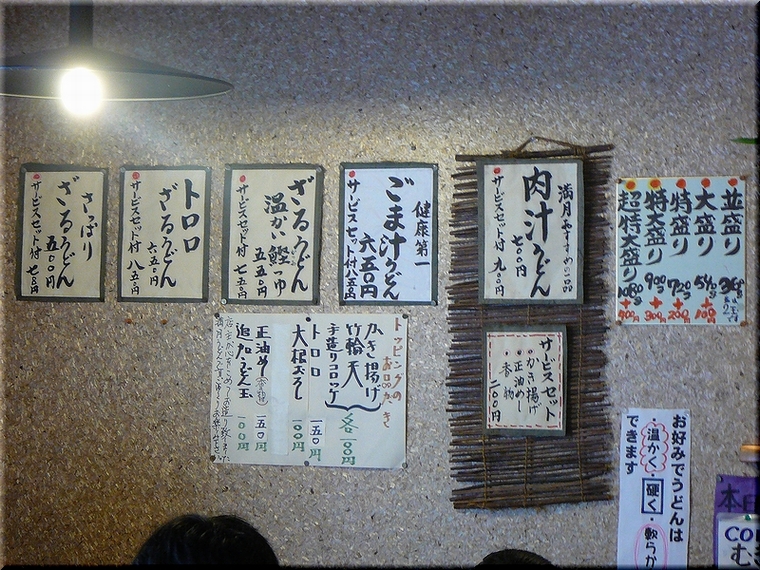 さっぱり
ざるうどん
五〇〇円
サービスセット付 七〇〇円
トロロ
ざるうどん
六五〇円
サービスセット付 八五〇円
ざるうどん
温かい鰹つゆ
五五〇円
サービスセット付 七五〇円
健康第一
ごま汁うどん
六五〇円
サービスセット付 八五〇円
満月おすすめの一品
肉汁うどん
七〇〇円
サービスセット付 九〇〇円
並盛り
大盛り
特盛り 720g +200円
特大盛り 900g +300円
超特大盛り 1080g +400円
トッピングの
お品がき
かき揚げ
竹輪天
手造りコロッケ
各一〇〇円
トロロ 一五〇円
大根おろし 一〇〇円
正油めし 一五〇円
追加うどん玉 一〇〇円
サービスセット
・かき揚げ
・正油めし
・香物
二〇〇円
お好みでうどんは
・温かく・硬く・軟らか
できます
本日